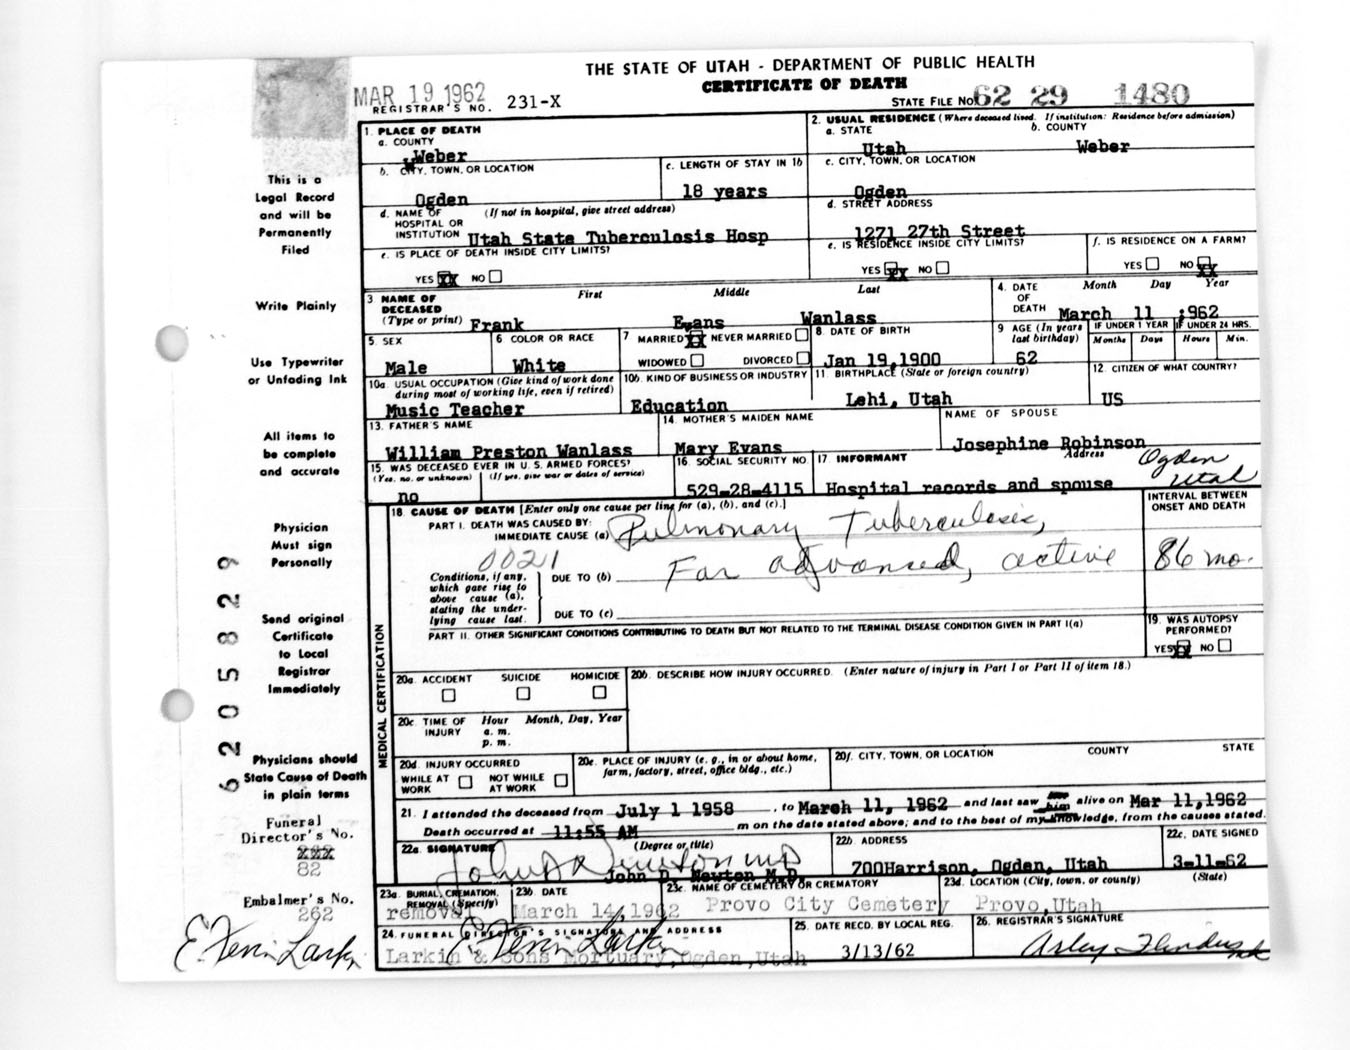 THE STATE OF UTAH - DEPARTMENT OF PUBLIC HEALTH
CERTIFICATE OF DEATH
MAR 19 1962
REGISTRAR'S NO. 231-X
STATE FILE NO. 62 29 1480
1. PLACE OF DEATH
a. COUNTY
Weber
2. USUAL RESIDENCE (Where deceased lived. If institution: Residence before admission)
a. STATE b. COUNTY
Utah Weber
b. CITY, TOWN, OR LOCATION
Ogden
c. LENGTH OF STAY IN 1b
18 years
c. CITY, TOWN, OR LOCATION
Ogden
d. NAME OF (If not in hospital, give street address)
HOSPITAL OR
INSTITUTION Utah State Tuberculosis Hosp
d. STREET ADDRESS
1271 27th Street
e. IS PLACE OF DEATH INSIDE CITY LIMITS?
YES XX NO
e. IS RESIDENCE INSIDE CITY LIMITS?
YES XX NO
f. IS RESIDENCE ON A FARM?
YES NO XX
3. NAME OF
DECEASED
(Type or print)
First Middle Last
Frank Evans Wanlass
4. DATE
OF
DEATH
Month Day Year
March 11 ;962
5. SEX
Male
6. COLOR OR RACE
White
7. MARRIED XX NEVER MARRIED
WIDOWED DIVORCED
8. DATE OF BIRTH
Jan 19,1900
9. AGE (In years
last birthday)
62
IF UNDER 1 YEAR
Months Days
IF UNDER 24 HRS.
Hours Min.
10a. USUAL OCCUPATION (Give kind of work done
during most of working life, even if retired)
Music Teacher
10b. KIND OF BUSINESS OR INDUSTRY
Education
11. BIRTHPLACE (State or foreign country)
Lehi, Utah
12. CITIZEN OF WHAT COUNTRY?
US
13. FATHER'S NAME
William Preston Wanlass
14. MOTHER'S MAIDEN NAME
Mary Evans
NAME OF SPOUSE
Josephine Robinson
15. WAS DECEASED EVER IN U. S. ARMED FORCES?
(Yes, no, or unknown) (If yes, give war or dates of service)
no
16. SOCIAL SECURITY NO.
529-28-4115
17. INFORMANT Address
Hospital records and spouse Ogden
Utah
18. CAUSE OF DEATH [Enter only one cause per line for (a), (b), and (c).]
INTERVAL BETWEEN
ONSET AND DEATH
PART I. DEATH WAS CAUSED BY:
IMMEDIATE CAUSE (a) Pulmonary Tuberculosis,
0021
Conditions, if any,
which gave rise to
above cause (a),
stating the under-
lying cause last.
DUE TO (b) Far advanced, active 86 mo.
DUE TO (c)
PART II. OTHER SIGNIFICANT CONDITIONS CONTRIBUTING TO DEATH BUT NOT RELATED TO THE TERMINAL DISEASE CONDITION GIVEN IN PART I(a)
19. WAS AUTOPSY
PERFORMED?
YES XX NO
MEDICAL CERTIFICATION
20a. ACCIDENT SUICIDE HOMICIDE
20b. DESCRIBE HOW INJURY OCCURRED. (Enter nature of injury in Part I or Part II of item 18.)
20c. TIME OF
INJURY
Hour Month, Day, Year
a. m.
p. m.
20d. INJURY OCCURRED
WHILE AT
WORK
NOT WHILE
AT WORK
20e. PLACE OF INJURY (e. g., in or about home,
farm, factory, street, office bldg., etc.)
20f. CITY, TOWN, OR LOCATION COUNTY STATE
21. I attended the deceased from July 1 1958, to March 11, 1962 and last saw him alive on Mar 11,1962
Death occurred at 11:55 AM m on the date stated above; and to the best of my knowledge, from the causes stated.
22a. SIGNATURE (Degree or title)
John D Newton MD
John D. Newton M.D.
22b. ADDRESS
700Harrison, Ogden, Utah
22c. DATE SIGNED
3-11-62
23a. BURIAL, CREMATION,
REMOVAL (Specify)
removal
23b. DATE
March 14,1962
23c. NAME OF CEMETERY OR CREMATORY
Provo City Cemetery
23d. LOCATION (City, town, or county) (State)
Provo,Utah
24. FUNERAL DIRECTOR'S SIGNATURE AND ADDRESS
Larkin & Sons Mortuary,Ogden,Utah
25. DATE RECD. BY LOCAL REG.
3/13/62
26. REGISTRAR'S SIGNATURE
This is a
Legal Record
and will be
Permanently
Filed
Write Plainly
Use Typewriter
or Unfading Ink
All items to
be complete
and accurate
Physician
Must sign
Personally
Send original
Certificate
to Local
Registrar
Immediately
Physicians should
State Cause of Death
in plain terms
Funeral
Director's No.
82
Embalmer's No.
262
6205829